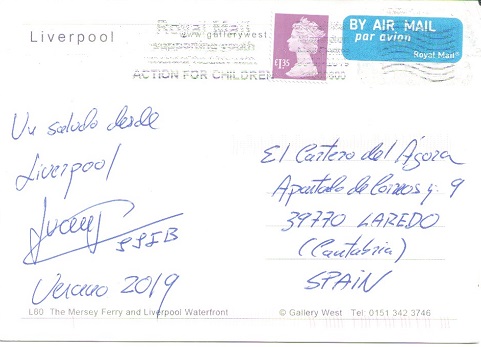 Liverpool
Royal Mail
www.gallerywest.
supporting youth
ACTION FOR CHILDREN
£1.35
BY AIR MAIL
par avion
Royal Mail
Un saludo desde
Liverpool
Verano 2019
El Cartero del Ágora
Apartado de Correos nº 9
39770 LAREDO
(Cantabria)
SPAIN
L60 The Mersey Ferry and Liverpool Waterfront
© Gallery West Tel: 0151 342 3746